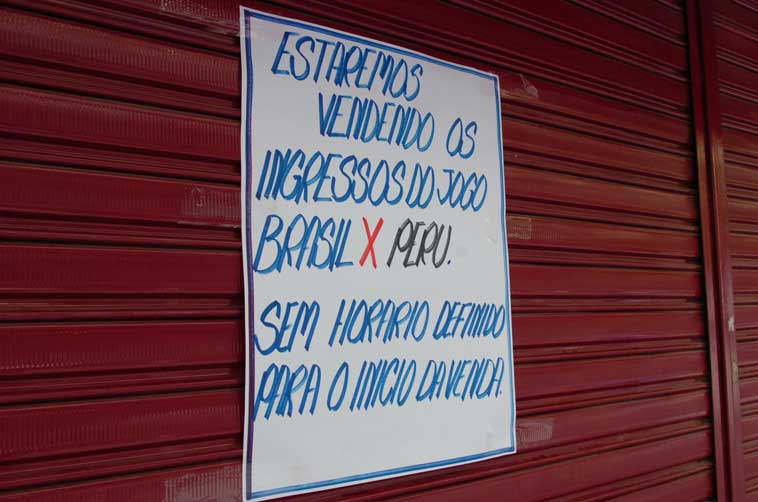 ESTAREMOS
VENDENDO OS
INGRESSOS DO JOGO
BRASIL X PERU.
SEM HORARIO DEFINIDO
PARA O INICIO DA VENDA.